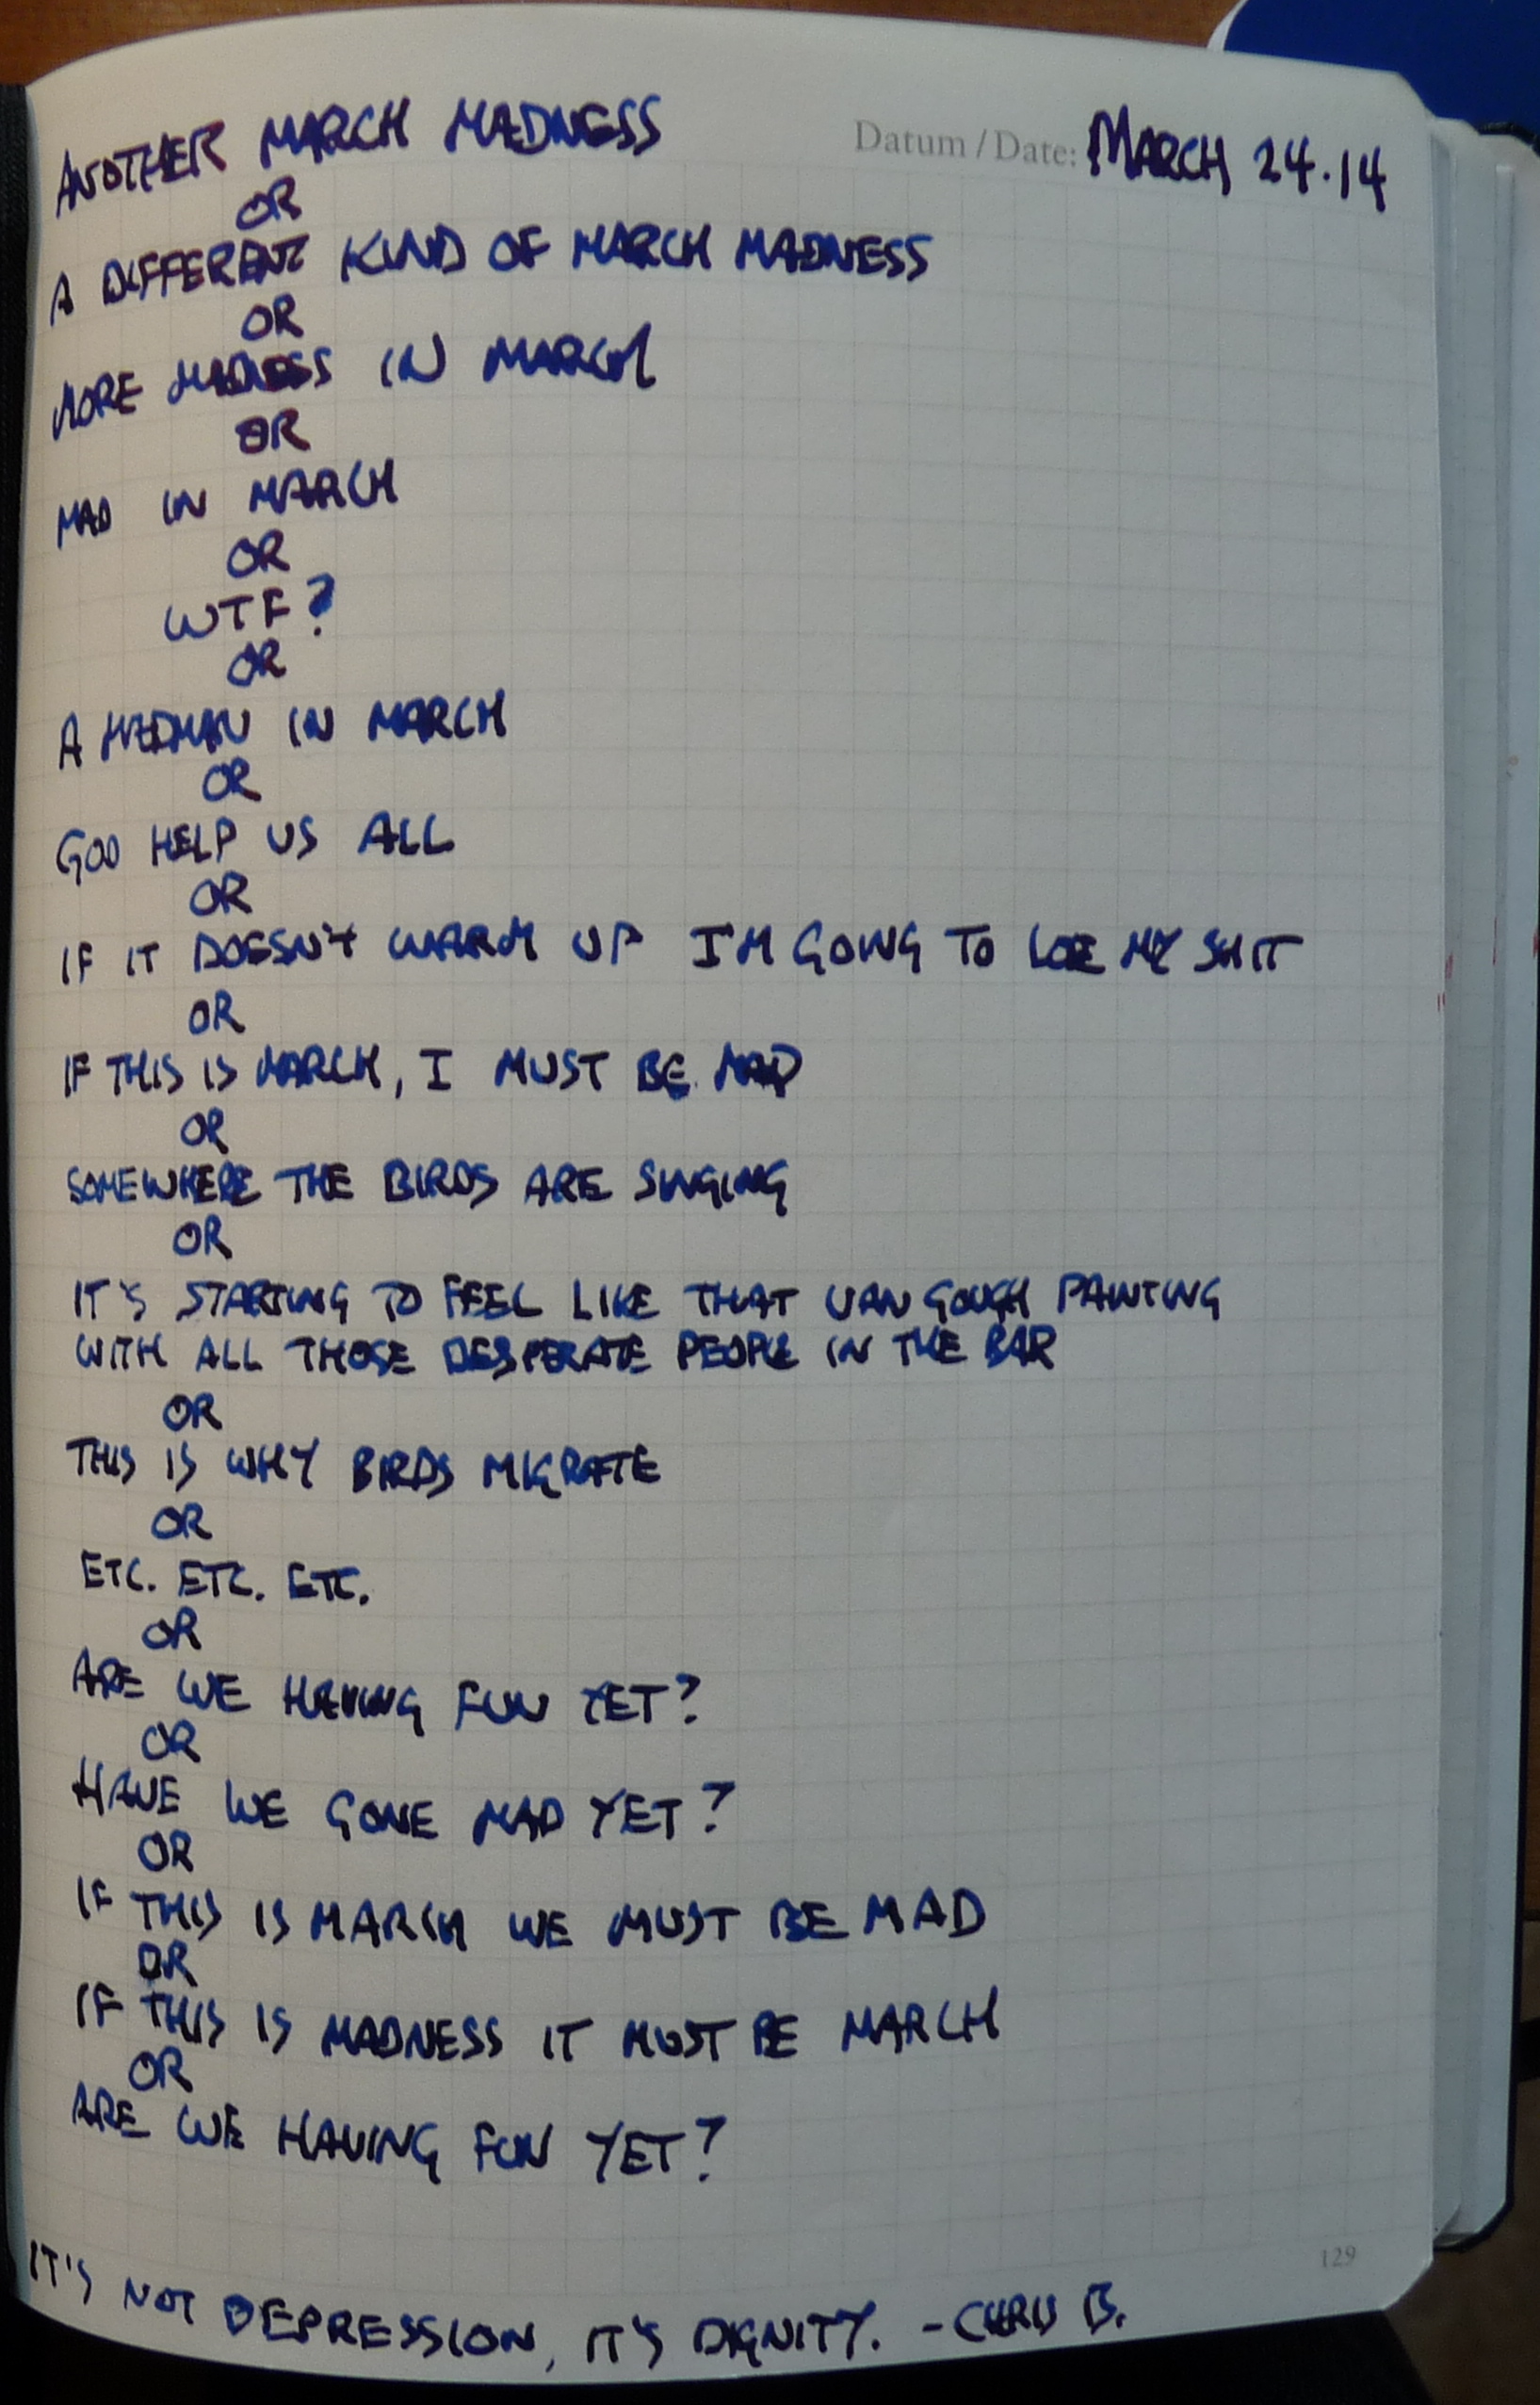 ANOTHER MARCH MADNESS
Datum / Date: MARCH 24.14
OR
A DIFFERENT KIND OF MARCH MADNESS
OR
MORE MADNESS IN MARCH
OR
MAD IN MARCH
OR
WTF?
OR
A MADMAN IN MARCH
OR
GOD HELP US ALL
OR
IF IT DOESN'T WARM UP I'M GOING TO LOSE MY SHIT
OR
IF THIS IS MARCH, I MUST BE MAD
OR
SOMEWHERE THE BIRDS ARE SINGING
OR
IT'S STARTING TO FEEL LIKE THAT VAN GOUGH PAINTING
WITH ALL THOSE DESPERATE PEOPLE IN THE BAR
OR
THIS IS WHY BIRDS MIGRATE
OR
ETC. ETC. ETC.
OR
ARE WE HAVING FUN YET?
OR
HAVE WE GONE MAD YET?
OR
IF THIS IS MARCH WE MUST BE MAD
OR
IF THIS IS MADNESS IT MUST BE MARCH
OR
ARE WE HAVING FUN YET?
129
IT'S NOT DEPRESSION, IT'S DIGNITY. - CHRIS B.